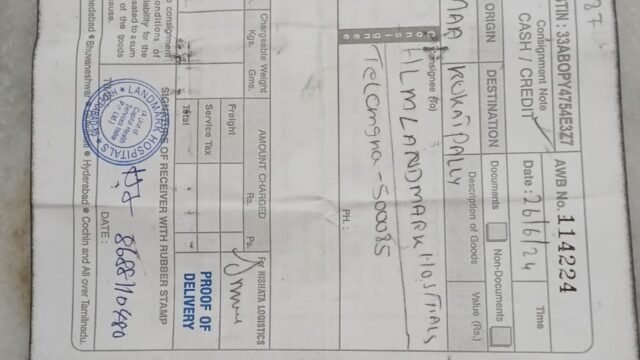 87
GSTIN: 33ABOPY4754E3Z7
Consignment Note
CASH / CREDIT
AWB No. 114224
Date : 26/6/24
Time
ORIGIN
DESTINATION
Documents
Non-Documents
MAA
KUKATPALLY
Description of Goods
Value (Rs.)
Consignee (to)
HLM LANDMARK HOSTIALS
Telangna-500085
PH. :
Chargeable Weight
Kgs.
Gms.
AMOUNT CHARGED
Rs.
Ps.
Freight
Service Tax
Total
For NISHATA LOGISTICS
PROOF OF
DELIVERY
SIGNATURE OF RECEIVER WITH RUBBER STAMP
LANDMARK HOSPITALS
DATE :
8688110480
consignment
conditions of
liability for the
to a sum
of the goods
cause.
Bhuvaneshwar
Hyderabad • Cochin and All over Tamilnadu.